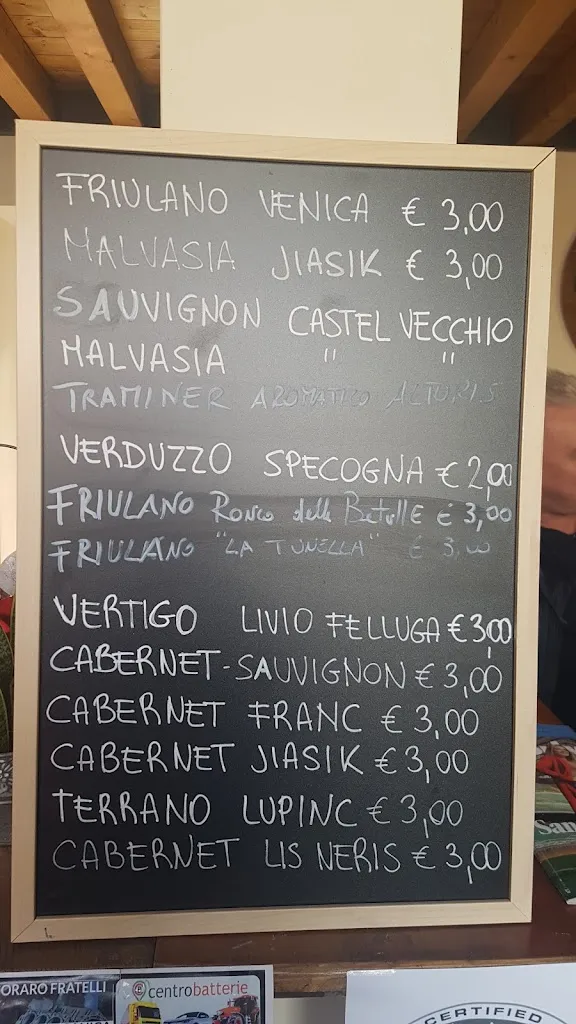 FRIULANO VENICA € 3,00
MALVASIA JIASIK € 3,00
SAUVIGNON CASTEL VECCHIO
MALVASIA " "
TRAMINER AROMATICO ALTURIS
VERDUZZO SPECOGNA € 2,00
FRIULANO Ronco delle Betulle € 3,00
FRIULANO "LA TUNELLA" € 3,00
VERTIGO LIVIO FELLUGA € 3,00
CABERNET-SAUVIGNON € 3,00
CABERNET FRANC € 3,00
CABERNET JIASIK € 3,00
TERRANO LUPINC € 3,00
CABERNET LIS NERIS € 3,00
San
ORARO FRATELLI
centrobatterie
CERTIFIED